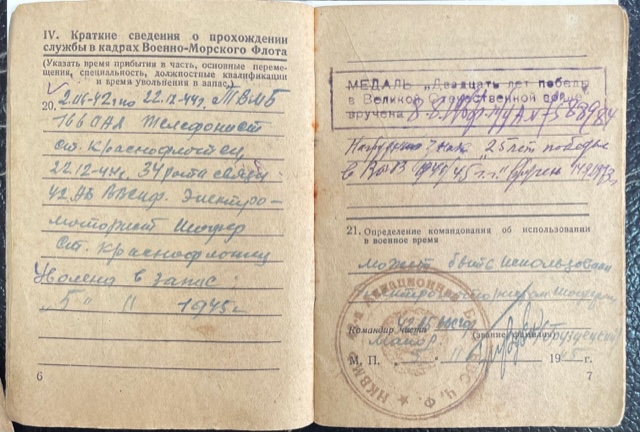 IV. Краткие сведения о прохождении
службы в кадрах Военно-Морского Флота
(Указать время прибытия в часть, основные переме-
щения, специальность, должностные квалификации
и время увольнения в запас)
20. 2.06-42г. по 22.12-44г. ТВМБ
166 ОАД Телефонист
ст. краснофлотец
22.12-44г. 34 рота связи
42 АБ ВВС ЧФ. Электро-
моторист Шофер
ст. краснофлотец
Уволена в запас
„5" 11 1945г
6
МЕДАЛЬ „Двадцать лет победы
в Великой Отечественной войне"
вручена
„25 лет победы
в ВОВ 1941/45 г.г."
21. Определение командования об использовании
в военное время
может быть использован
Командир части 42 АБ ВВС ЧФ
Майор
(звание, фамилия)
М. П. 5 11 1945 г.
7